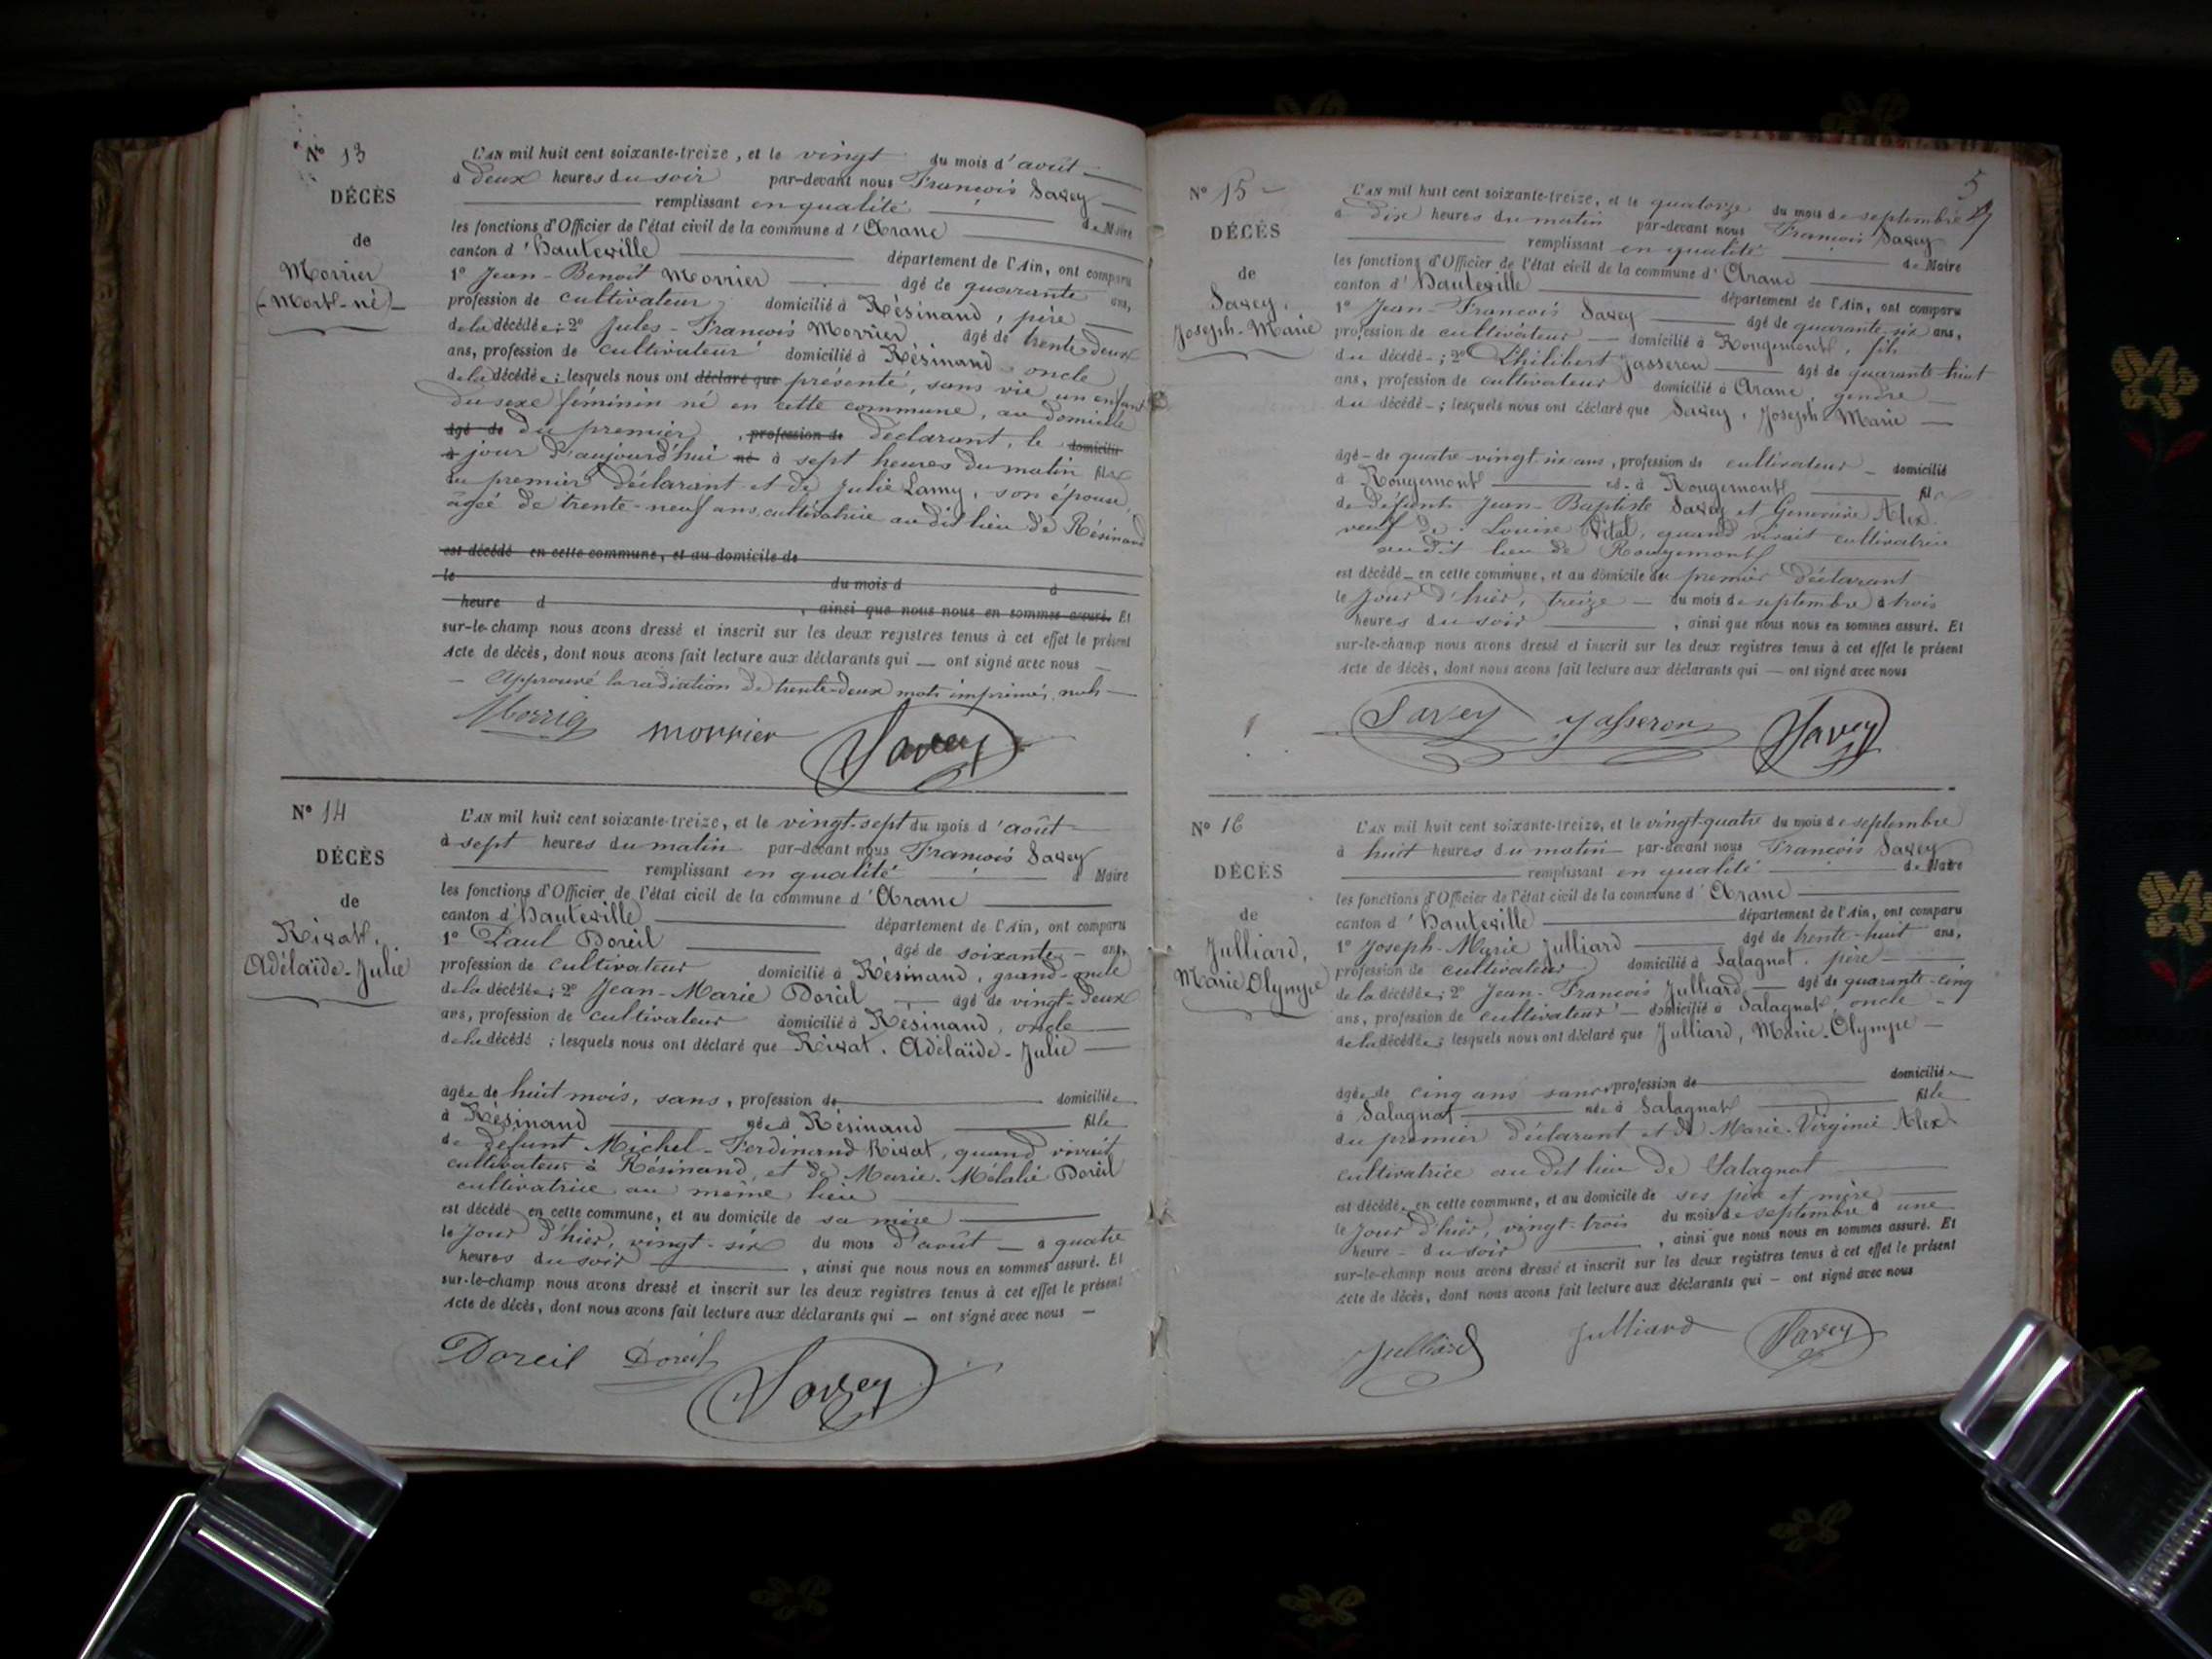 N° 13
DÉCÈS
de
Morrier
(Mort-né)
L'AN mil huit cent soixante-treize, et le vingt du mois d'août
à deux heures du soir par-devant nous François Savey
remplissant en qualité de Maire
les fonctions d'Officier de l'état civil de la commune d'Aranc
canton d'Hauteville département de l'Ain, ont comparu
1° Jean-Benoit Morrier âgé de quarante ans,
profession de cultivateur domicilié à Résinand, père
de la décédée; 2° Jules-François Morrier âgé de trente-deux
ans, profession de cultivateur domicilié à Résinand oncle
de la décédée; lesquels nous ont déclaré que présenté, sans vie, un enfant
du sexe féminin né en cette commune, au domicile
âgé de du premier, profession de déclarant, le domicilié
à jour d'aujourd'hui né à sept heures du matin fille
du premier déclarant et de Julie Lamy, son épouse,
âgée de trente-neuf ans, cultivatrice audit lieu de Résinand
est décédé en cette commune, et au domicile de
le du mois d à
heure d , ainsi que nous nous en sommes assuré. Et
sur-le-champ nous avons dressé et inscrit sur les deux registres tenus à cet effet le présent
Acte de décès, dont nous avons fait lecture aux déclarants qui — ont signé avec nous —
— Approuvé la radiation de trente-deux mots imprimés, nuls —
morrier Savey
N° 14
DÉCÈS
de
Rivat,
Adélaïde-Julie
L'AN mil huit cent soixante-treize, et le vingt-sept du mois d'août
à sept heures du matin par-devant nous François Savey
remplissant en qualité d Maire
les fonctions d'Officier de l'état civil de la commune d'Aranc
canton d'Hauteville département de l'Ain, ont comparu
1° Paul Doreil âgé de soixante ans,
profession de cultivateur domicilié à Résinand, grand-oncle
de la décédée; 2° Jean-Marie Doreil âgé de vingt-deux
ans, profession de cultivateur domicilié à Résinand, oncle
de la décédé ; lesquels nous ont déclaré que Rivat, Adélaïde-Julie
âgée de huit mois, sans, profession de domiciliée
à Résinand née à Résinand fille
de défunt Michel-Ferdinand Rivat, quand vivait
cultivateur à Résinand, et de Marie-Mélalie Doreil
cultivatrice au même lieu
est décédé en cette commune, et au domicile de sa mère
le jour d'hier, vingt-six du mois d'août — à quatre
heures du soir , ainsi que nous nous en sommes assuré. Et
sur-le-champ nous avons dressé et inscrit sur les deux registres tenus à cet effet le présent
Acte de décès, dont nous avons fait lecture aux déclarants qui — ont signé avec nous —
Doreil Doreil Savey
5
N° 15
DÉCÈS
de
Savey,
Joseph-Marie
L'AN mil huit cent soixante-treize, et le quatorze du mois de septembre
à dix heures du matin par-devant nous François Savey
remplissant en qualité de Maire
les fonctions d'Officier de l'état civil de la commune d'Aranc
canton d'Hauteville département de l'Ain, ont comparu
1° Jean-François Savey âgé de quarante-six ans,
profession de cultivateur — domicilié à Rougemont, fils
du décédé-; 2° Philibert Jasseron âgé de quarante-huit
ans, profession de cultivateur domicilié à Aranc, gendre
du décédé-; lesquels nous ont déclaré que Savey, Joseph-Marie —
âgé- de quatre-vingt-six ans, profession de cultivateur — domicilié
à Rougemont né- à Rougemont fils
de défunts Jean-Baptiste Savey et Geneviève Alex
veuf de Louise Vital, quand vivait cultivatrice
audit lieu de Rougemont
est décédé- en cette commune, et au domicile du premier déclarant
le jour d'hier, treize — du mois de septembre à trois
heures du soir , ainsi que nous nous en sommes assuré. Et
sur-le-champ nous avons dressé et inscrit sur les deux registres tenus à cet effet le présent
Acte de décès, dont nous avons fait lecture aux déclarants qui — ont signé avec nous
Savey Jasseron Savey
N° 16
DÉCÈS
de
Julliard,
Marie Olympe
L'AN mil huit cent soixante-treize, et le vingt-quatre du mois de septembre
à huit heures du matin par-devant nous François Savey
remplissant en qualité de Maire
les fonctions d'Officier de l'état civil de la commune d'Aranc
canton d'Hauteville département de l'Ain, ont comparu
1° Joseph-Marie Julliard âgé de trente-huit ans,
profession de cultivateur domicilié à Salagnat, père
de la décédée; 2° Jean-François Julliard — âgé de quarante-cinq
ans, profession de cultivateur — domicilié à Salagnat, oncle
de la décédée; lesquels nous ont déclaré que Julliard, Marie-Olympe —
âgée de cinq ans sans profession de domiciliée
à Salagnat née à Salagnat fille
du premier déclarant et de Marie-Virginie Alex
cultivatrice audit lieu de Salagnat
est décédée en cette commune, et au domicile de ses père et mère
le jour d'hier, vingt-trois du mois de septembre à une
heure - du soir , ainsi que nous nous en sommes assuré. Et
sur-le-champ nous avons dressé et inscrit sur les deux registres tenus à cet effet le présent
Acte de décès, dont nous avons fait lecture aux déclarants qui — ont signé avec nous
Julliard Julliard Savey